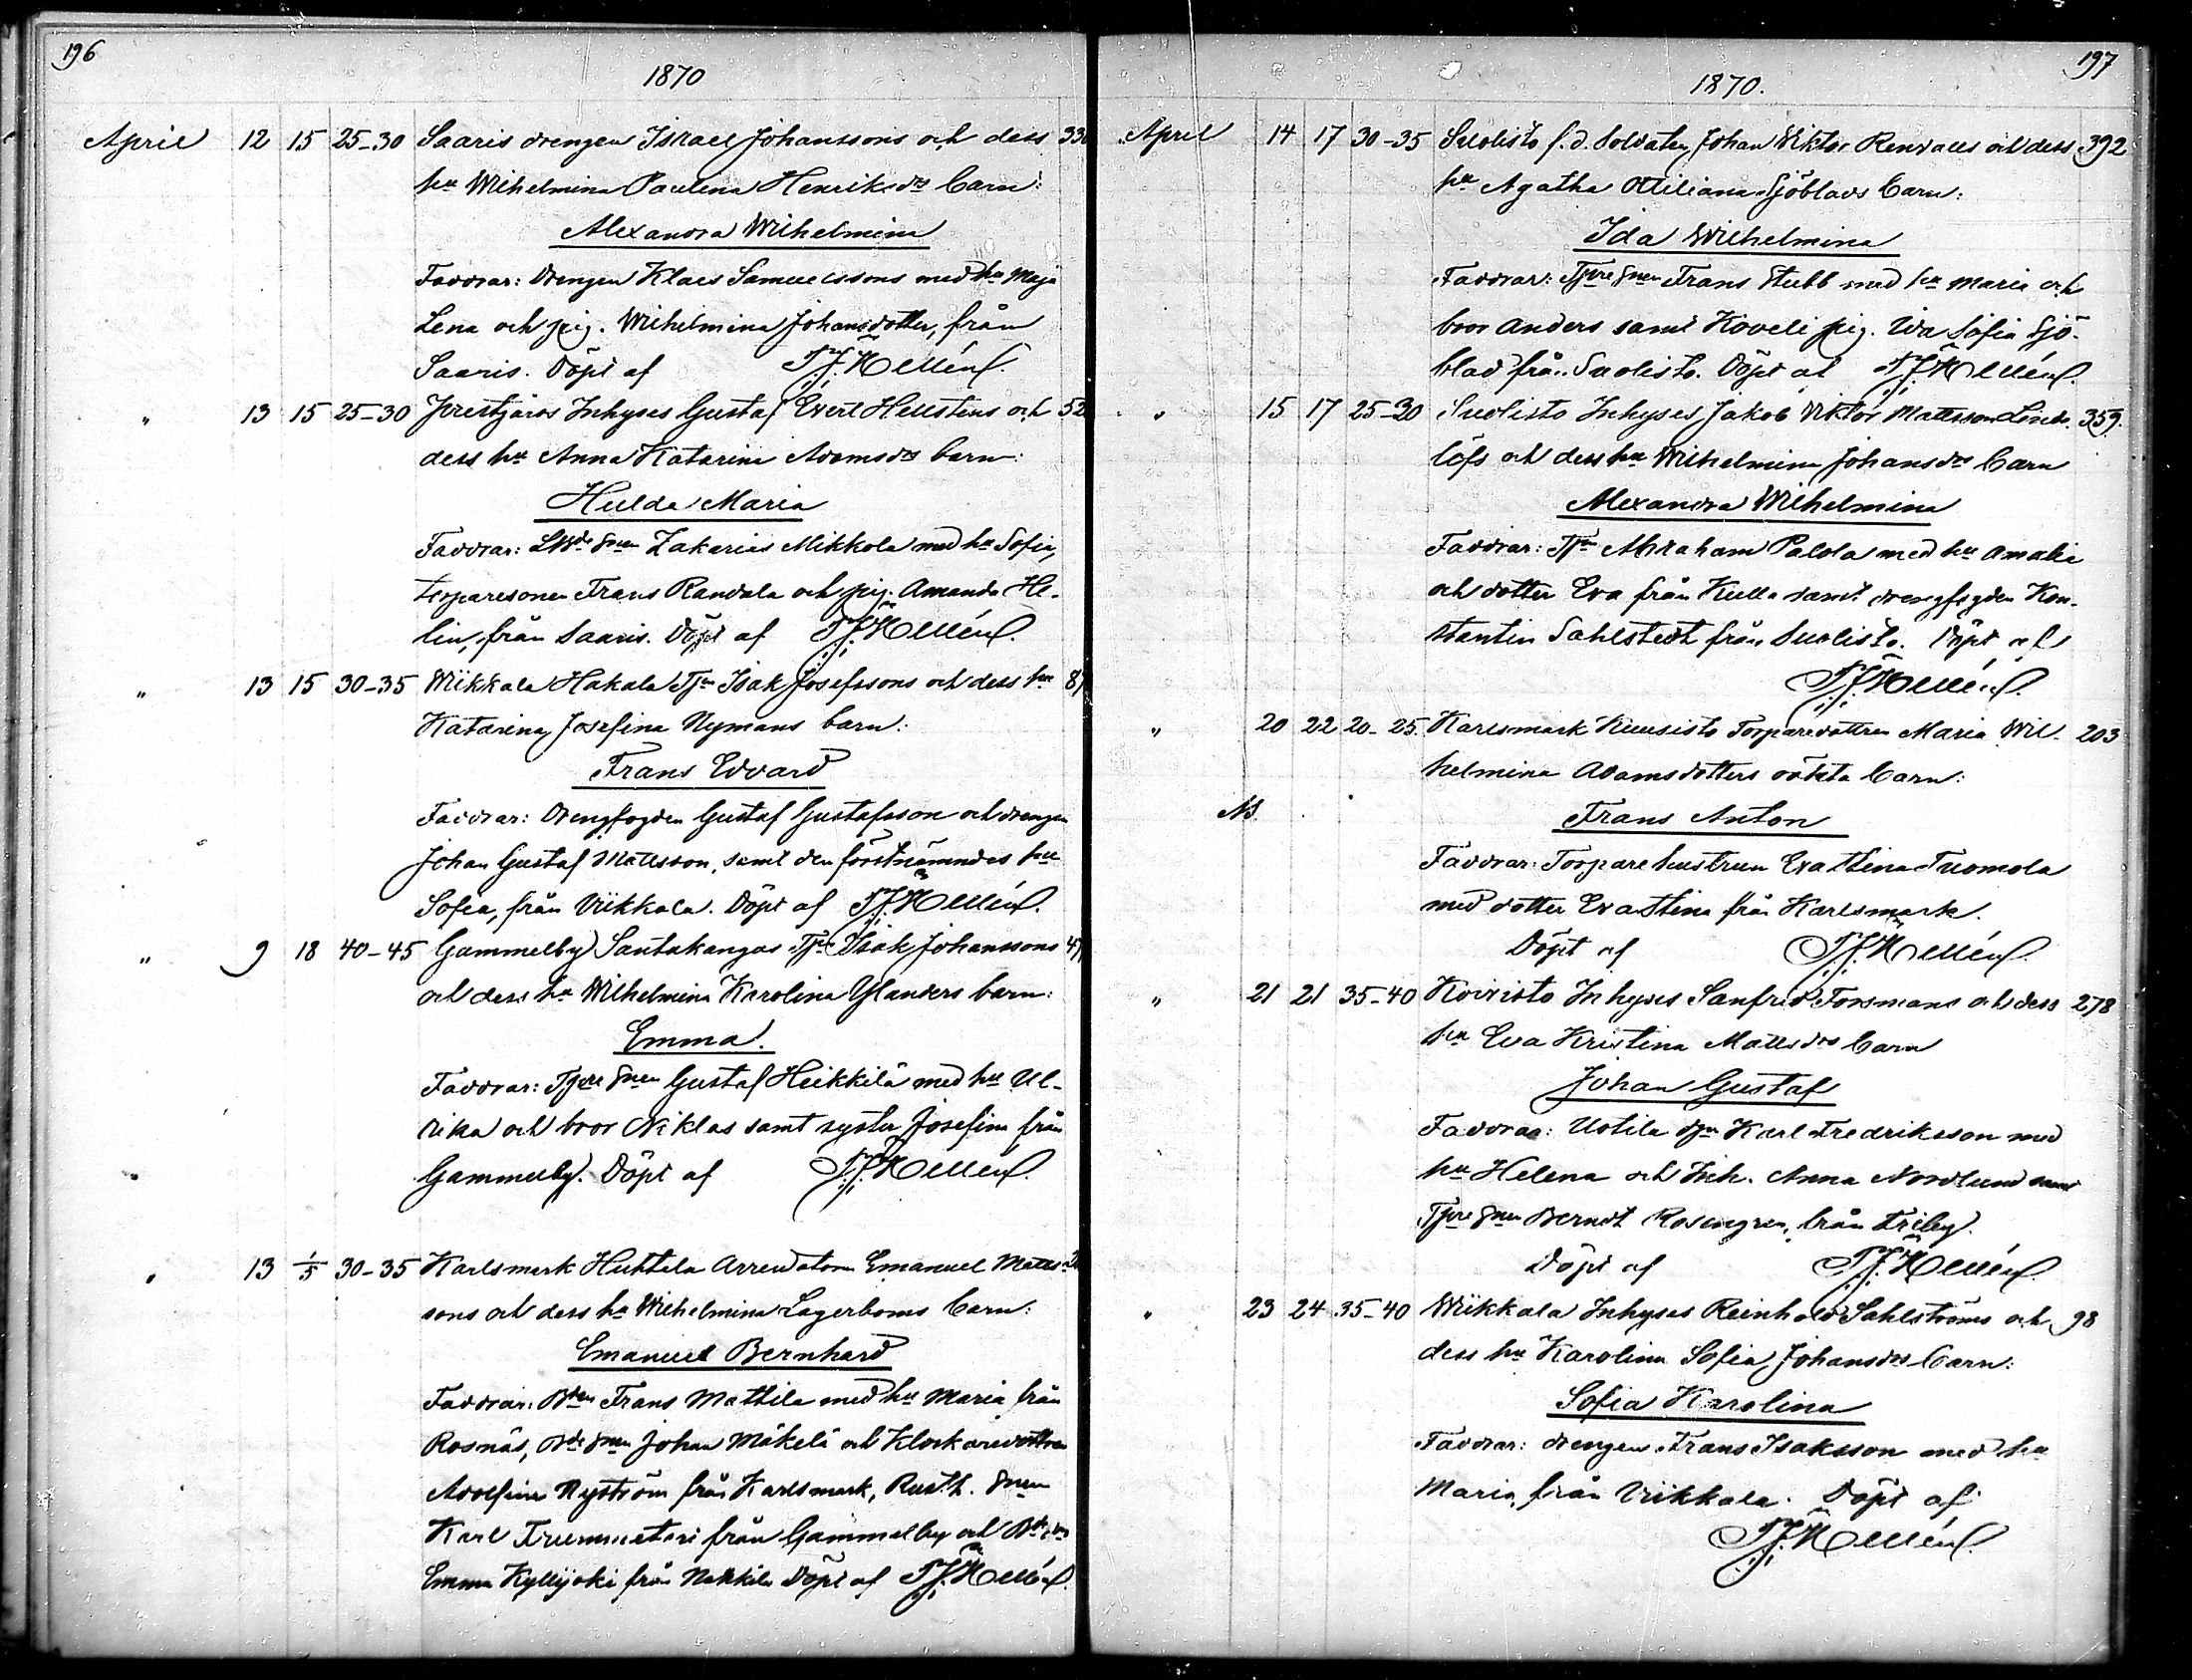 196
1870
April 12 15 25-30 Saaris drengen Israel Johanssons och dess
hu Wilhelmina Paulina Henriksdrs barn:
Alexandra Wilhelmina
Faddrar: Drengen Klaes Samuelssons med hu Maja
Lena och pig. Wilhelmina Johansdotter, från
Saaris. Döpt af
" 13 15 25-30 Prestgårds Inhyses Gustaf Evert Hellstens och 52
dess hu Anna Katarina Adamsdrs barn:
Hulda Maria
Faddrar: Zakarias Mikkola med hu Sofia,
torparesonen Frans Randala och pig. Amanda He-
lin, från Saaris. Döpt af
" 13 15 30-35 Wikkala Hakala Isak Josefssons och dess hu
Katarina Josefina Nymans barn:
Frans Edvard
Faddrar: Drengfogden Gustaf Gustafsson och drengen
Johan Gustaf Mattsson, samt den förstnämndes hu
Sofia, från Viikkala. Döpt af
" 9 18 40-45 Gammelby Santakangas Isak Johanssons
och dess hu Wilhelmina Karolina Ylanders barn:
Emma.
Faddrar: Tpre Snen Gustaf Heikkilä med hu Ul-
rika och bror Niklas samt syster Josefina från
Gammelby. Döpt af
" 13 1/5 30-35 Karlsmark Huhtala Arrendatorn Emanuel Matts-
sons och dess hu Wilhelmina Lagerboms barn:
Emanuel Bernhard
Faddrar: Frans Mattila med hu Maria från
Rosnäs, Johan Mäkelä och Klockaredottren
Adolfina Nyström från Karlsmark, Rusth. Snen
Karl från Gammelby och
Emma Kyllijoki från Nakkila Döpt af
197
1870.
April 14 17 30-35 Suolisto f.d. Soldaten Johan Wiktor Renvalls och dess 392
hu Agatha Otiliana Sjöblads barn:
Ida Wilhelmina
Faddrar: Tpre Snen Frans Stubb med hu Maria och
bror Anders samt Koveli pig. Ida Sofia Sjö-
blad från Suolisto. Döpt af
" 15 17 25-30 Suolisto Inhyses Jakob Viktor Mattsson Lind- 359.
löfs och dess hu Wilhelmina Johansdrs barn
Alexandra Wilhelmina
Faddrar: Abraham Palola med hu Amalia
och dotter Eva från Kulla samt drengfogden Kon-
stantin Sahlstedt från Suolisto. Döpt af
" 20 22 20-25. Karlsmark Kuusisto Torparedottren Maria Wil- 203
helmina Adamsdotters oäkta barn:
Frans Anton
Faddrar: Torpare hustrun Eva Stina Tuomola
med dotter Eva Stina från Karlsmark.
Döpt af
" 21 21 35-40 Koivisto Inhyses Sanfrid Forsmans och dess 278
hu Eva Kristina Mattsdrs barn
Johan Gustaf
Faddrar: Uotila Karl Fredriksson med
hu Helena och Inh. Anna Nordlund samt
Tpre Snen Berndt Rosengren, från Friby.
Döpt af
" 23 24 35-40 Wiikkala Inhyses Reinhold Sahlströms och 98
dess hu Karolina Sofia Johansdrs barn:
Sofia Karolina
Faddrar: drengen Frans Isaksson med hu
Maria från Viikkala. Döpt af